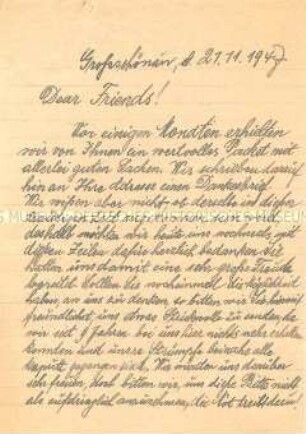 Grossschönau, d. 21.11.1947
Dear Friends!
Vor einigen Monaten erhielten
wir von Ihnen ein wertvolles Packet mit
allerlei guten Sachen. Wir schrieben darauf
hin an Ihre Addresse einen Dankesbrief.
Wir wissen aber nicht ob derselbe in Ihren
deshalb möchten wir heute uns nochmals mit
diesen Zeilen dafür herzlich bedanken. Sie
hatten uns damit eine sehr große Freude
bereitet. Sollten Sie nocheinmal Möglichkeit
haben, an uns zu denken, so bitten wir Sie
freundlichst, uns etwas zu senden, da
wir seit 9 Jahren bei uns hier nichts mehr erhalten
konnten und unsere Strümpfe beinahe alle
kaputt gegangen sind. Wir würden uns darüber
sehr freuen. Doch bitten wir, uns diese Bitte nicht
als aufdringlich anzusehen, die Not treibt dazu